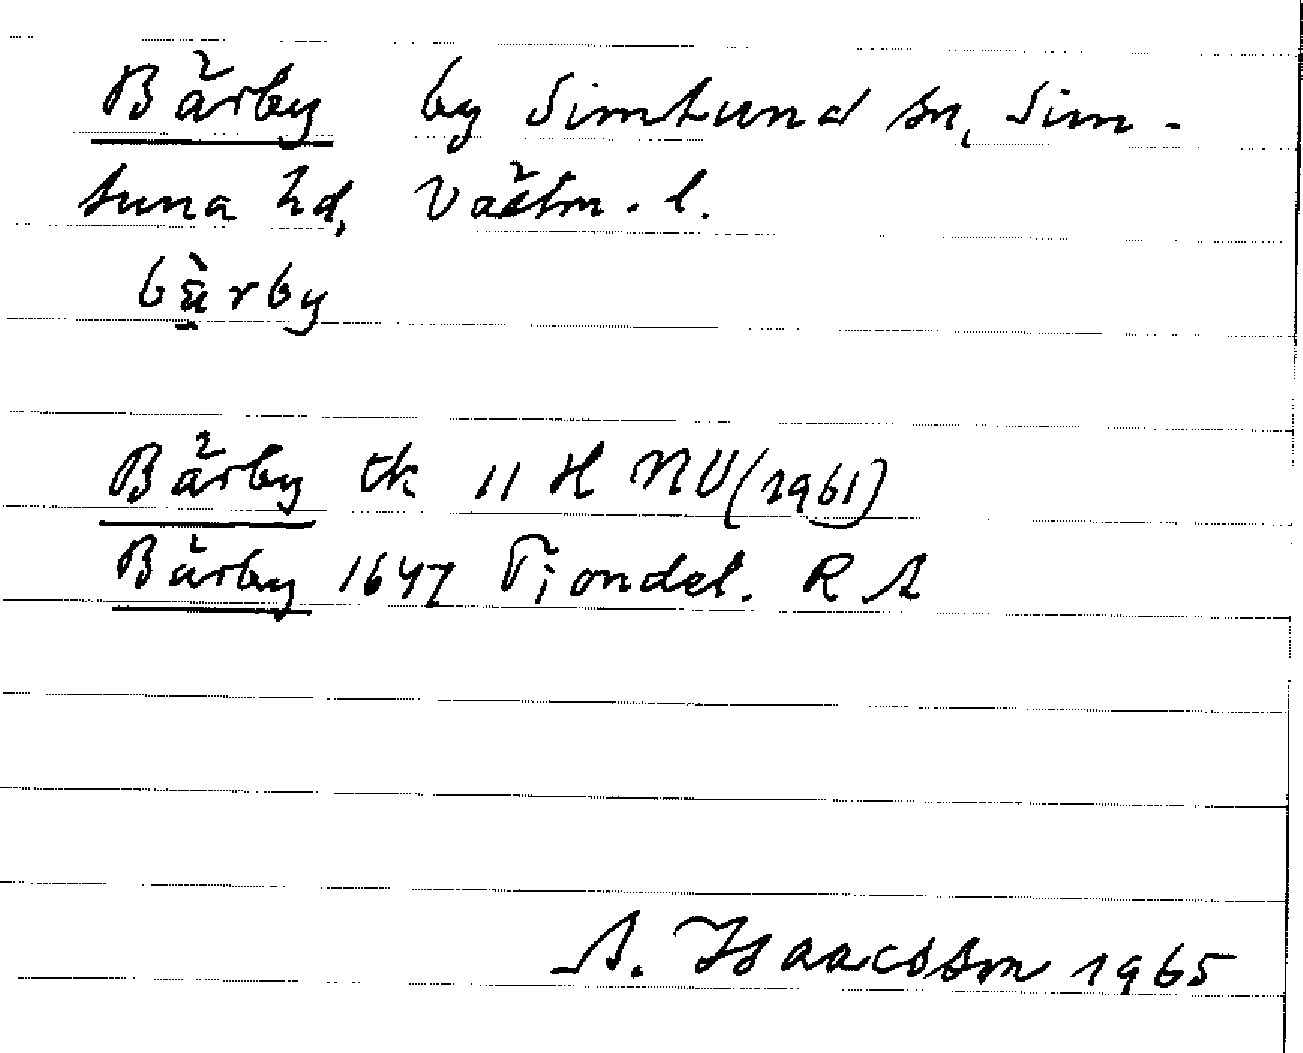 Bärby by Simtuna sn, Sim-
tuna hd, Västm. l.
bä̀rby
Bärby ek 11 H NV (1961)
Bärby 1647 Tiondel. RA
A. Isaacsson 1965